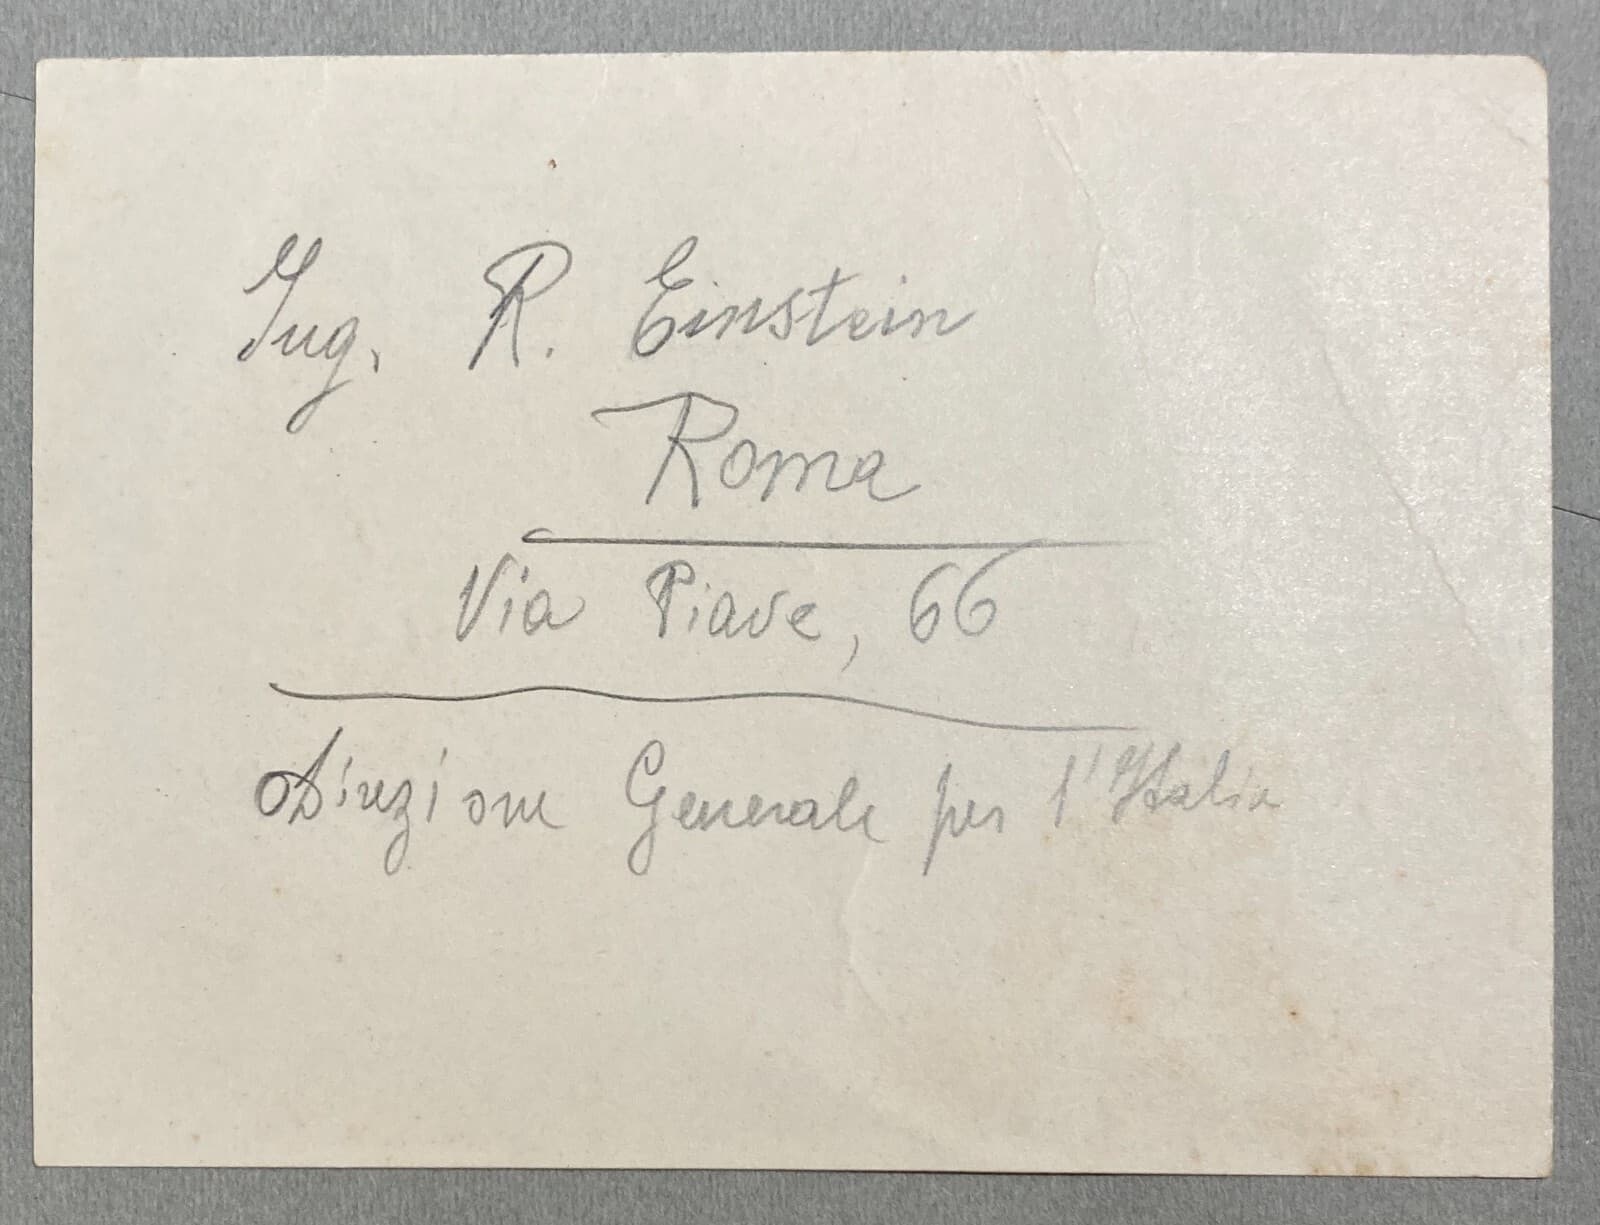 Ing. R. Einstein
Roma
Via Piave, 66
Direzione Generale per l'Italia